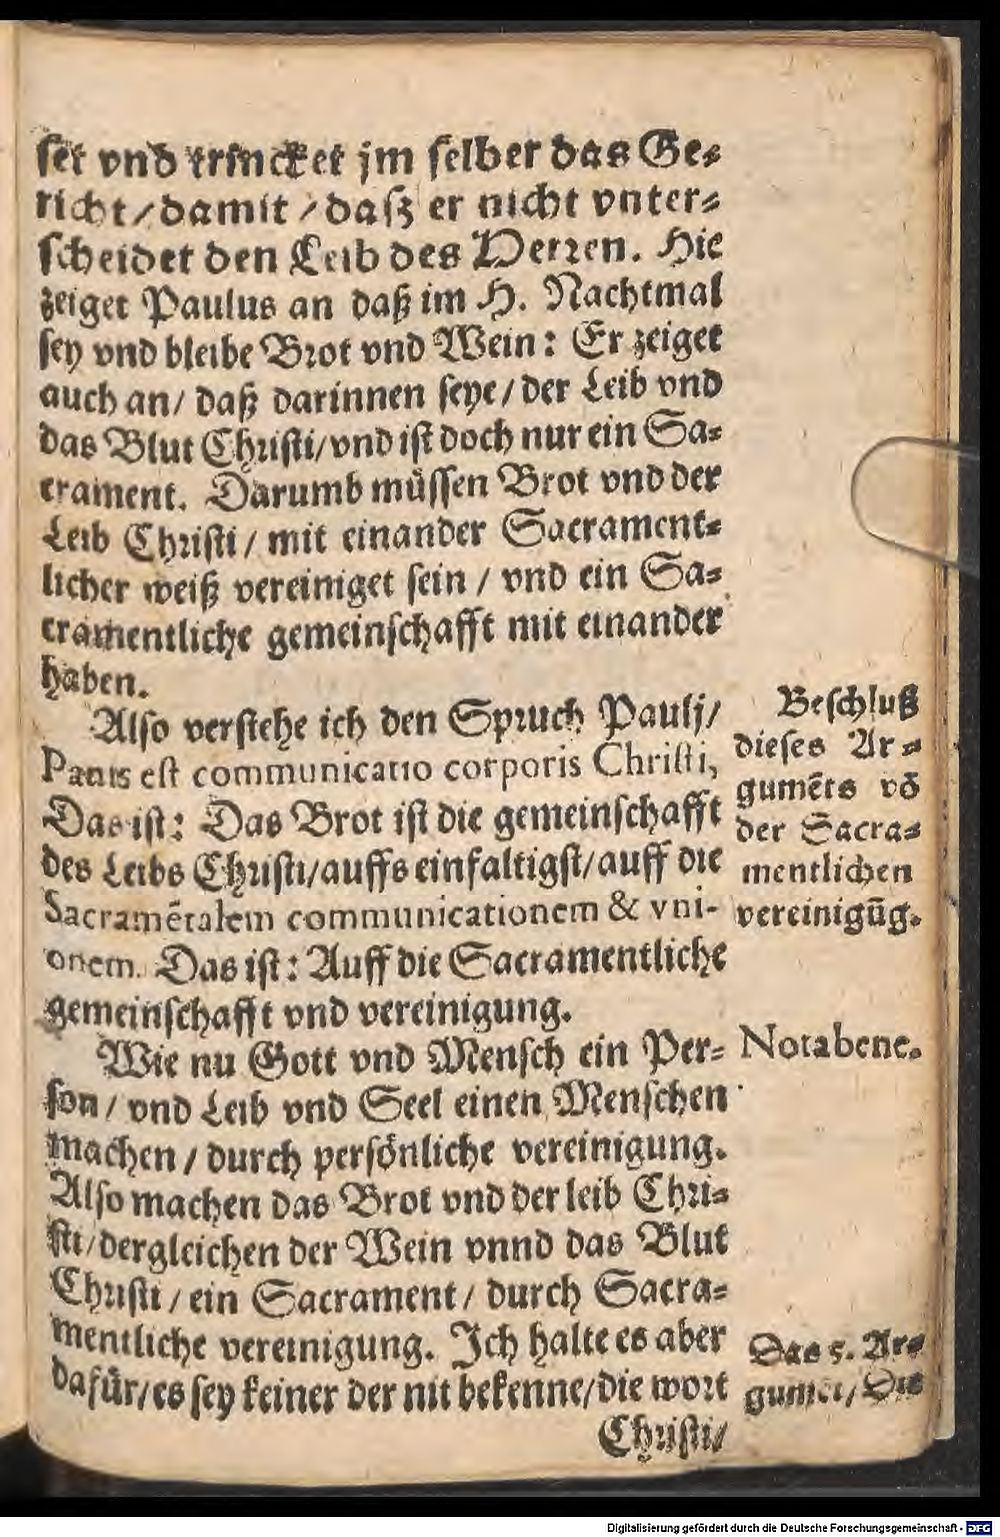 set vnd trincket jm selber das Ge⸗
richt/ damit / dasz er nicht vnter⸗
scheidet den Leib des Herren. Hie
zeiget Paulus an daß im H. Nachtmal
sey vnd bleibe Brot vnd Wein: Er zeiget
auch an/ daß darinnen seye/ der Leib vnd
das Blut Christi/ vnd ist doch nur ein Sa⸗
crament. Darumb müssen Brot vnd der
Leib Christi/ mit einander Sacrament⸗
licher weiß vereiniget sein / vnd ein Sa⸗
cramentliche gemeinschafft mit einander
haben.
Also verstehe ich den Spruch Paulj/
Panis est communicatio corporis Christi,
Das ist: Das Brot ist die gemeinschafft
des Leibs Christi/ auffs einfaltigst/ auff die
Sacramẽtalem communicationem & vni-
onem. Das ist: Auff die Sacramentliche
gemeinschafft vnd vereinigung.
Beschluß
dieses Ar⸗
gumẽts võ
der Sacra⸗
mentlichen
vereinigũg.
Wie nu Gott vnd Mensch ein Per⸗
son / vnd Leib vnd Seel einen Menschen
machen / durch persönliche vereinigung.
Also machen das Brot vnd der leib Chri⸗
sti/ dergleichen der Wein vnnd das Blut
Christi / ein Sacrament / durch Sacra⸗
mentliche vereinigung. Ich halte es aber
dafür/ es sey keiner der nit bekenne/ die wort
Christi/
Notabene.
Das 5. Ar⸗
gumẽt/ Die
Digitalisierung gefördert durch die Deutsche Forschungsgemeinschaft - DFG